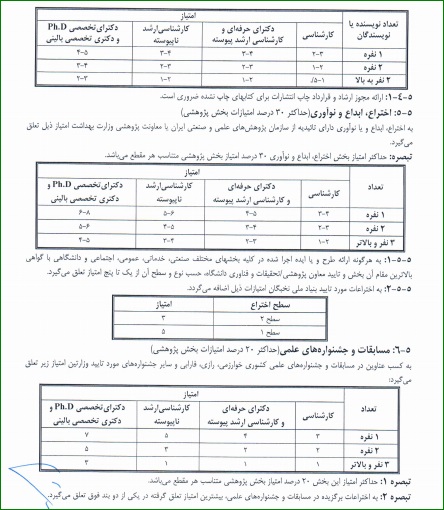 امتیاز
تعداد نویسنده یا نویسندگان | کارشناسی | دکترای حرفه‌ای و کارشناسی ارشد پیوسته | کارشناسی‌ارشد ناپیوسته | دکترای‌تخصصی Ph.D و دکتری تخصصی بالینی
۱ نفره | ۲-۳ | ۳-۴ | ۳-۴ | ۴-۵
۲ نفره | ۱-۲ | ۲-۳ | ۲-۳ | ۳-۴
۲ نفر به بالا | ۱-۵/. | ۱-۲ | ۱-۲ | ۲-۳
۵-۴-۱: ارائه مجوز ارشاد و قرارداد چاپ انتشارات برای کتابهای چاپ نشده ضروری است.
۵-۵: اختراع، ابداع و نوآوری(حداکثر ۳۰ درصد امتیازات بخش پژوهشی)
به اختراع، ابداع و یا نوآوری دارای تائیدیه از سازمان پژوهش‌های علمی و صنعتی ایران یا معاونت پژوهشی وزارت بهداشت امتیاز ذیل تعلق
می‌گیرد.
تبصره: حداکثر امتیاز بخش اختراع، ابداع و نوآوری ۳۰ درصد امتیاز بخش پژوهشی متناسب هر مقطع می‌باشد.
امتیاز
تعداد | کارشناسی | دکترای حرفه‌ای و کارشناسی ارشد پیوسته | کارشناسی‌ارشد ناپیوسته | دکترای‌تخصصی Ph.D و دکتری تخصصی بالینی
۱ نفره | ۳-۴ | ۴-۵ | ۵-۶ | ۶-۸
۲ نفره | ۲-۳ | ۳-۴ | ۴-۵ | ۵-۶
۳ نفر و بالاتر | ۱-۲ | ۲-۳ | ۳-۴ | ۴-۵
۵-۵-۱: به هرگونه ارائه طرح و یا ایده اجرا شده در کلیه بخشهای مختلف صنعتی، خدماتی، عمومی، اجتماعی و دانشگاهی با گواهی
بالاترین مقام آن بخش و تایید معاون پژوهشی/تحقیقات و فناوری دانشگاه، حسب نوع و سطح آن از یک تا پنج امتیاز تعلق می‌گیرد.
۵-۵-۲: به اختراعات مورد تایید بنیاد ملی نخبگان امتیازات ذیل اضافه می‌گردد.
سطح اختراع | امتیاز
سطح ۲ | ۳
سطح ۱ | ۵
۵-۶: مسابقات و جشنواره‌های علمی(حداکثر ۲۰ درصد امتیازات بخش پژوهشی)
به کسب عناوین در مسابقات و جشنواره‌های علمی کشوری خوارزمی، رازی، فارابی و سایر جشنواره‌های مورد تایید وزارتین امتیاز زیر تعلق
می‌گیرد:
امتیاز
تعداد | کارشناسی | دکترای حرفه‌ای و کارشناسی ارشد پیوسته | کارشناسی‌ارشد ناپیوسته | دکترای‌تخصصی Ph.D و دکتری تخصصی بالینی
۱ نفره | ۳ | ۴ | ۵ | ۷
۲ نفره | ۲ | ۲ | ۳ | ۵
۳ نفر و بالاتر | ۱ | ۱ | ۲ | ۳
تبصره ۱: حداکثر امتیاز این بخش ۲۰ درصد امتیاز بخش پژوهشی متناسب هر مقطع می‌باشد.
تبصره ۲: به اختراعات برگزیده در مسابقات و جشنواره‌های علمی، بیشترین امتیاز تعلق گرفته در یکی از دو بند فوق تعلق می‌گیرد.